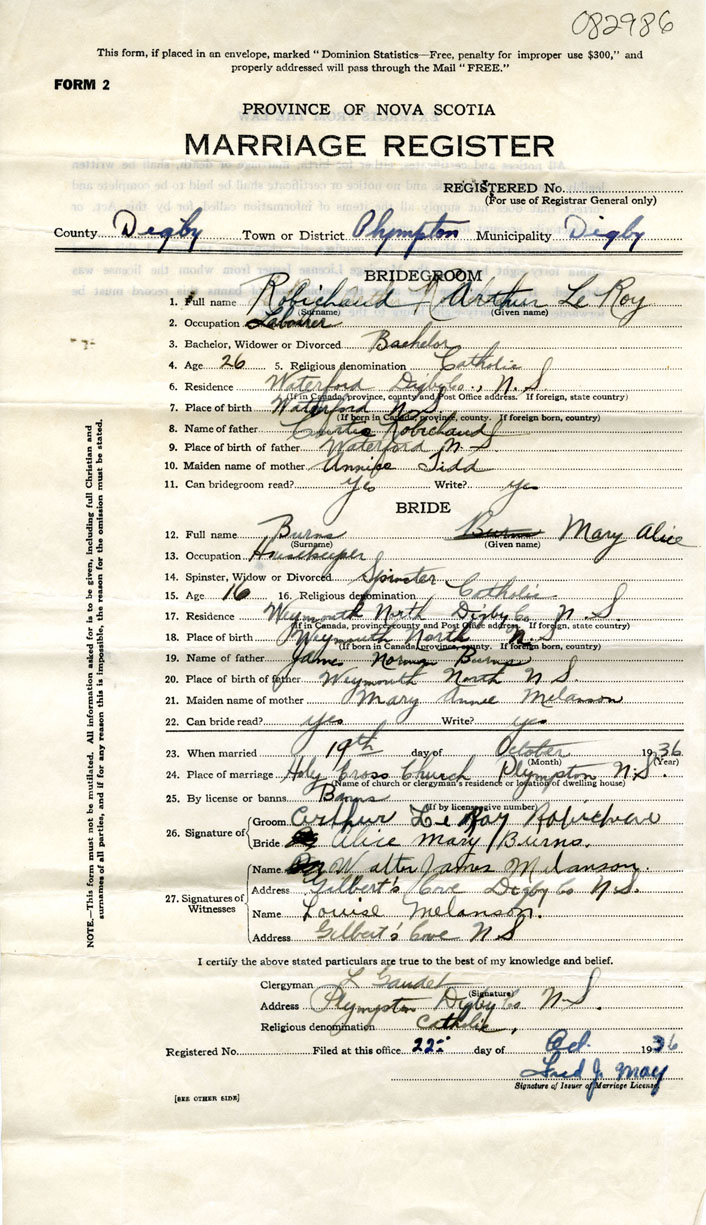 082986
This form, if placed in an envelope, marked "Dominion Statistics—Free, penalty for improper use $300," and
properly addressed will pass through the Mail "FREE."
FORM 2
PROVINCE OF NOVA SCOTIA
MARRIAGE REGISTER
REGISTERED No.
(For use of Registrar General only)
County Digby Town or District Plympton Municipality Digby
BRIDEGROOM
1. Full name Robichaud Arthur Le Roy
(Surname) (Given name)
2. Occupation Labourer
3. Bachelor, Widower or Divorced Bachelor
4. Age 26 5. Religious denomination Catholic
6. Residence Waterford Digby Co., N.S.
(If in Canada, province, county and Post Office address. If foreign, state country)
7. Place of birth Waterford N.S.
(If born in Canada, province, county. If foreign born, country)
8. Name of father Curtis Robichaud
9. Place of birth of father Waterford N.S.
10. Maiden name of mother Tidd
11. Can bridegroom read? yes Write? yes
BRIDE
12. Full name Burns Burns Mary Alice
(Surname) (Given name)
13. Occupation Housekeeper
14. Spinster, Widow or Divorced Spinster
15. Age 16 16. Religious denomination Catholic
17. Residence Weymouth North Digby Co. N.S.
(If in Canada, province, county and Post Office address. If foreign, state country)
18. Place of birth Weymouth North N.S.
(If born in Canada, province, county. If foreign born, country)
19. Name of father James Norman Burns
20. Place of birth of father Weymouth North N.S.
21. Maiden name of mother Mary Annie Melanson
22. Can bride read? yes Write? yes
23. When married 19th day of October 1936
(Month) (Year)
24. Place of marriage Holy Cross Church Plympton N.S.
(Name of church or clergyman's residence or location of dwelling house)
25. By license or banns Banns
(If by license give number)
26. Signature of Groom Arthur Le Roy Robicheau
Bride Alice Mary Burns.
27. Signatures of Witnesses
Name Walter James Melanson.
Address Gilbert's Cove Digby Co N.S.
Name Louise Melanson.
Address Gilbert's Cove N.S
I certify the above stated particulars are true to the best of my knowledge and belief.
Clergyman L Gaudet
(Signature)
Address Plympton Digby Co N.S.
Religious denomination Catholic,
Registered No. Filed at this office 22 day of Oct. 1936
Fred J. May
Signature of Issuer of Marriage License
[SEE OTHER SIDE]
NOTE.—This form must not be mutilated. All information asked for is to be given, including full Christian and
surnames of all parties, and if for any reason this is impossible, the reason for the omission must be stated.